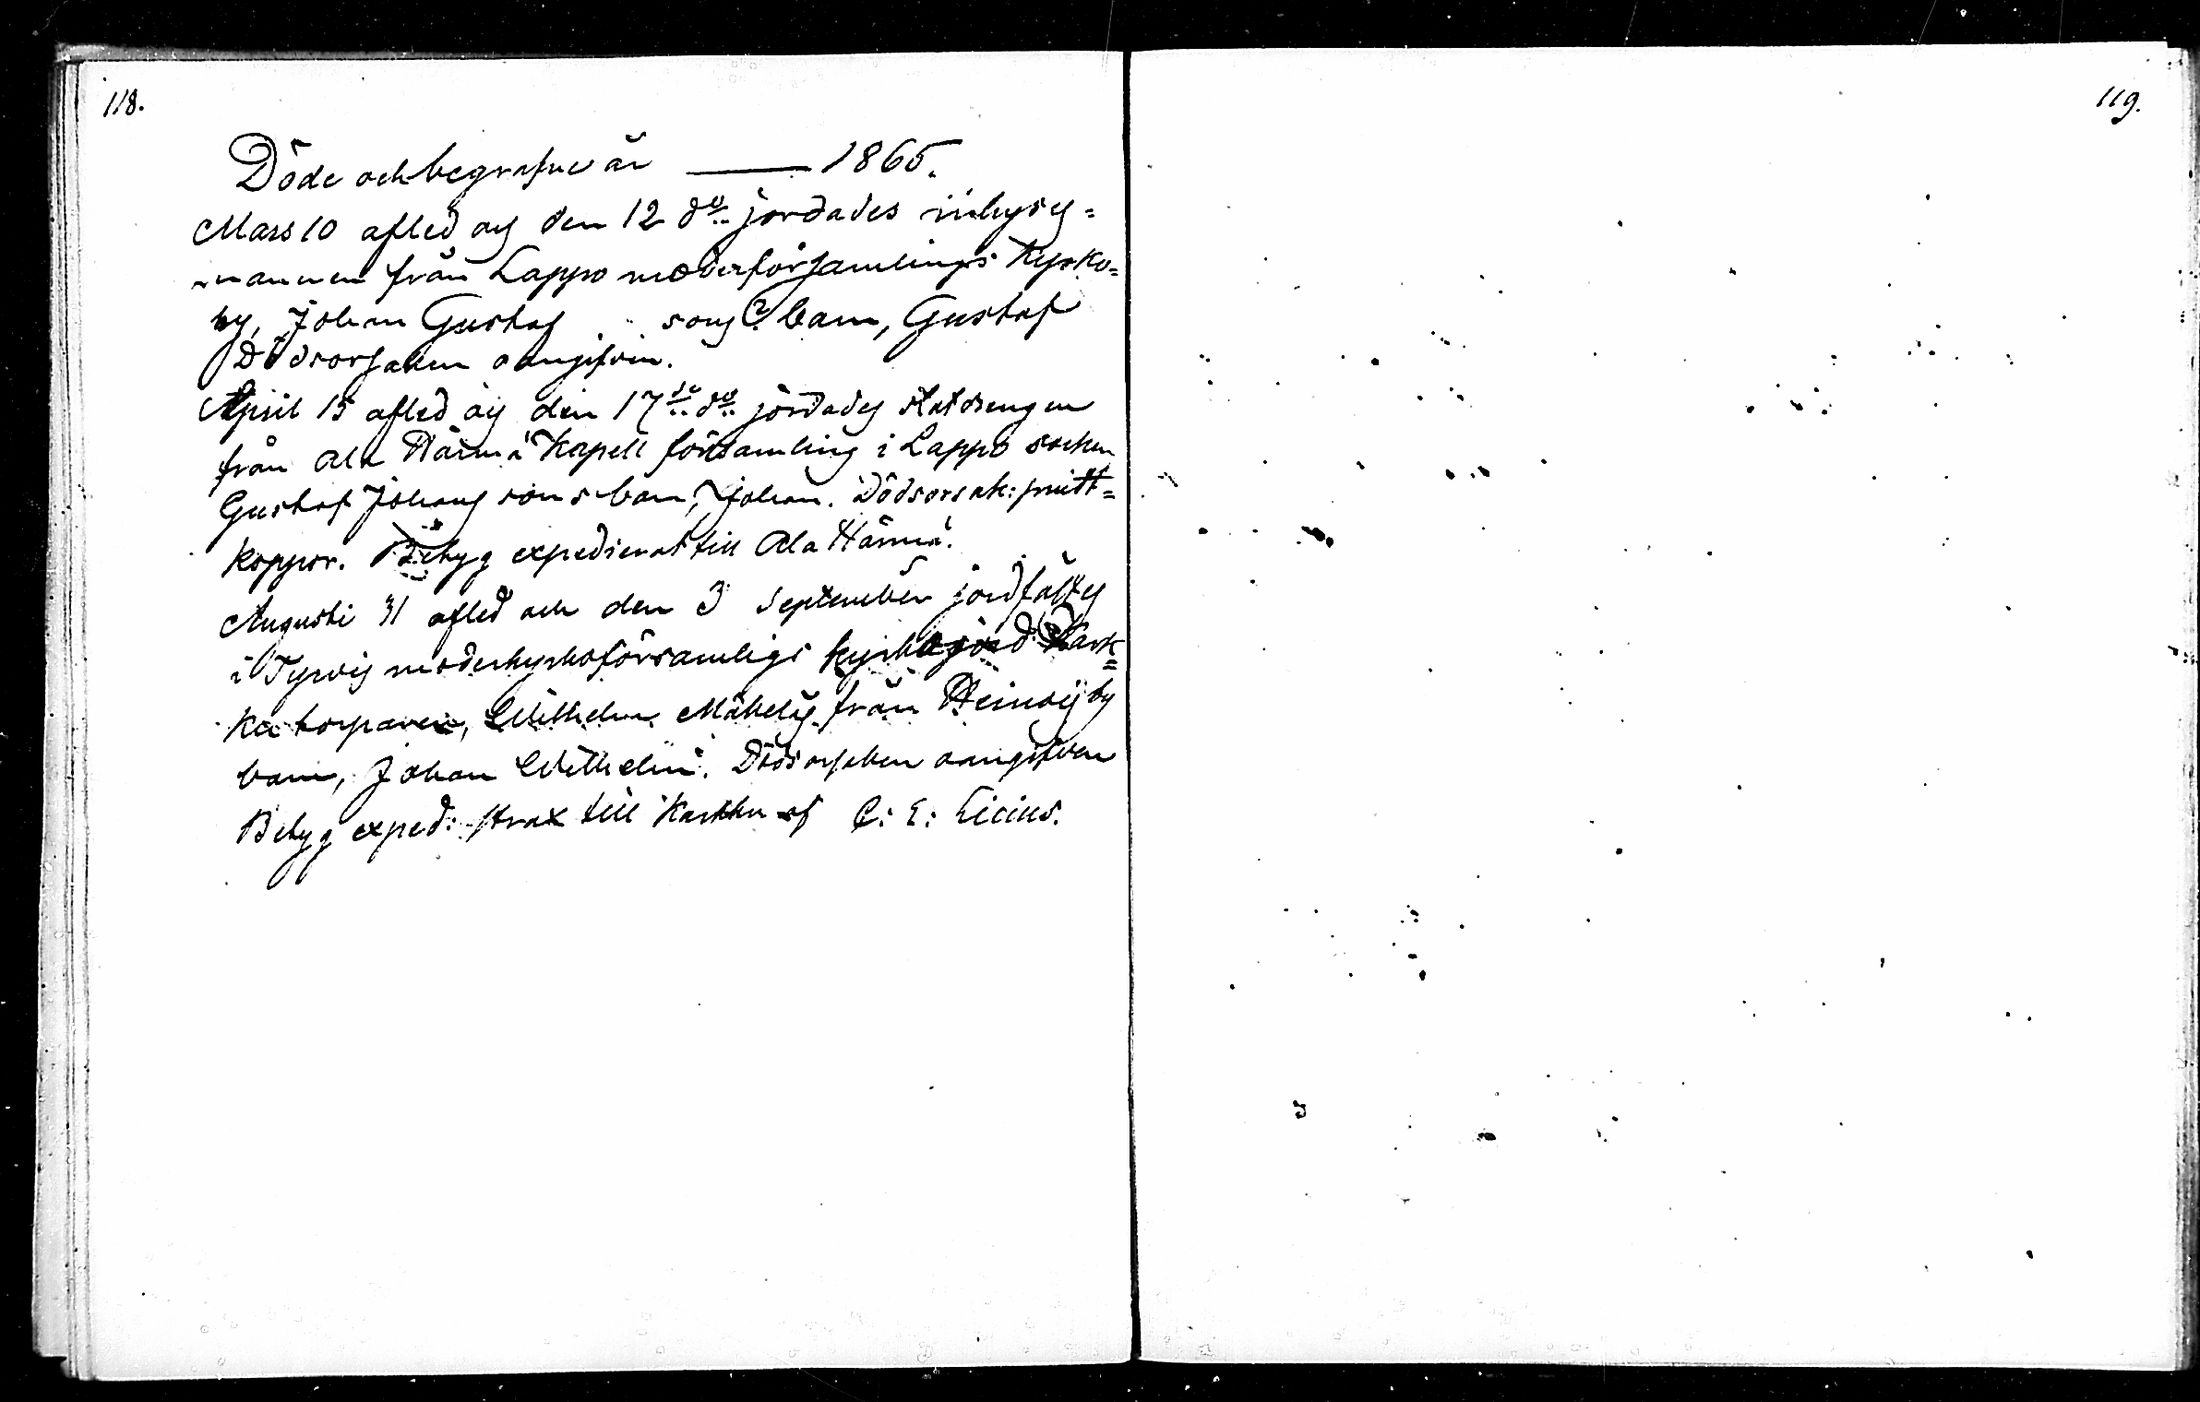 118.
119.
Döde och begrafne år — 1865.
Mars 10 afled och den 12 do jordades inhyses=
mannen från Lappo moderförsamlings Kyrko=
by, Johan Gustaf sons? barn, Gustaf
Dödsorsaken oangifven.
April 15 afled och den 17de do jordades statdrengen
från Ala Härmä Kapell församling i Lappo socken
Gustaf Johans sons barn, Johan. Dödsorsak: smitt=
koppor. Betyg expedierat till Ala Härmä.
Augusti 31 afled och den 3 September jordfästes
i Tyrvis moderkyrkoförsamligs kyrkogård Kark=
ku torparen, Wilhelm Mäkeläs från Heinois by
barn, Johan Wilhelm. Dödsorsaken oangifven
Betyg exped: strax till Karkku af C: E: Licius.